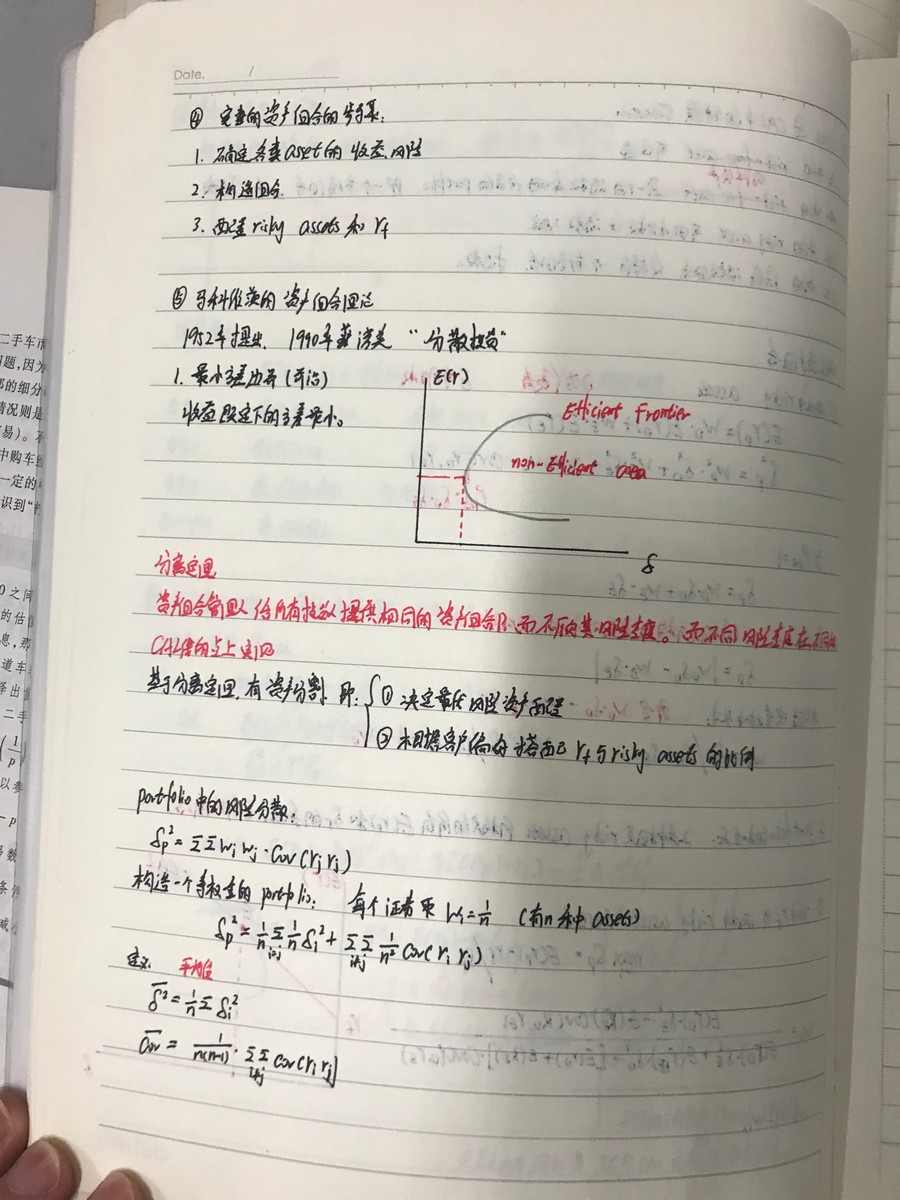 Date. /
④ 完整的资产组合的步骤:
1. 确定各类asset的收益、风险
2. 构造组合
3. 配置risky assets和rf
⑤ 马科维茨的资产组合理论
1952年提出、1990年获诺奖 "分散投资"
1. 最小方差边界(前沿)
收益既定下的方差最小。
E(r)
Efficient Frontier
non-Efficient area
δ
分离定理
资产组合管理人给所有投资人提供相同的资产组合P、而不顾其风险态度。而不同风险态度在不同的
CAL上的点上实现
基于分离定理, 有资产分割, 即: ① 决定最优风险资产配置
② 根据客户偏好搭配rf与risky assets的比例
portfolio中的风险分散:
δp²=ΣΣwiwj·Cov(ri rj)
构造一个等权重的portfolio: 每个证券取 wi=1/n (有n种assets)
δp²=1/n Σ 1/n δi²+ ΣΣ i≠j 1/n² Cov(ri rj)
定义: 平均值
δ̄²=1/n Σ δi²
C̄ov = 1/n(n-1) · ΣΣ i≠j Cov(ri rj)
二手车市
问题,因为
部的细分
情况则是
易)。不
中购车
一定的
识到"
0 之间
的估值
息,那
道车
择出
二手
(1/p
以参
- p
易数
条件
减小